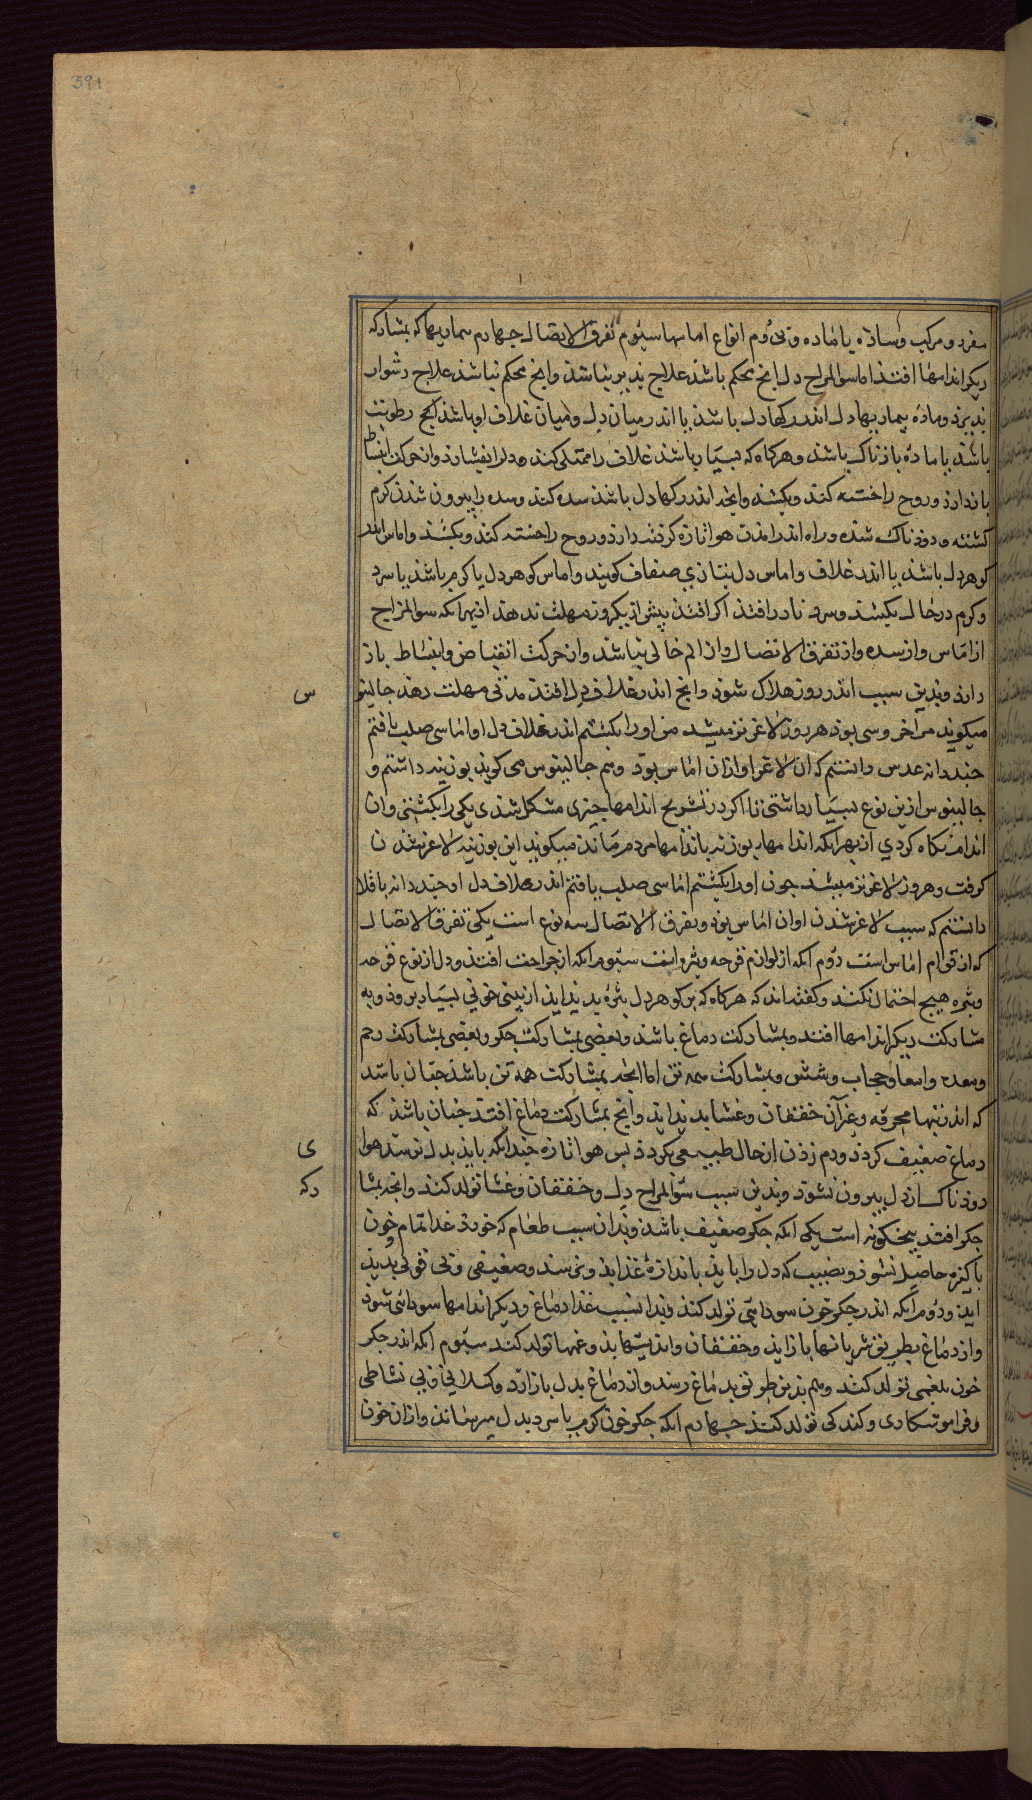 391
مفرد و مرکب و ساده یا ماده و بی دوم انواع اماسها سیوم تفرق الاتصال چهارم بیماریها که بمشارکه
دیکر اندامها افتذ اما سوالمزاج دل انچ محکم باشذ علاج بذیر نباشذ وانچ محکم نباشذ علاج دشوار
بذیرذ وماده بیماریهاء دل اندر رکهاء دل باشذ یا اندر میان دل و میان غلاف او باشذ انچ رطوبت
باشذ یا ماده باذناک باشذ و هرکاه که بسیار باشذ غلاف را ممتلی کند و دل را بفشارذ و از حرکت انبساط
بازدارذ و روح را خسته کند و بکشذ وانچه اندر رکهاء دل باشذ سده کند و سده را بیرون شذن کرم
کشته و دوذناک شذه و راه اندر امذن هواء تازه کرفته دارذ و روح را خسته کند و بکشذ و اماس اندر
کوهر دل باشذ یا اندر غلاف و اماس دل بتازی صفاف کویند و اماس کوهر دل یا کرم باشذ یا سرد
و کرم درحال بکشذ و سرد نادر افتذ اکر افتذ بیش از یکروز مهلت ندهذ از بهر انکه سوالمزاج
از اماس و از سده و از تفرق الاتصال و از الم خالی نباشذ و از حرکت انقباض و انبساط باز
دارذ و بذین سبب اندر روز هلاک شوذ وانچ اندر غلاف دل افتذ مدتی مهلت دهذ جالینو
س
میکویذ مراخروسی بوذ هر روز لاغرتر میشد من او را بکشتم اندر غلاف دل او اماسی صلب یافتم
چند دانه عدس دانستم که ان لاغری او از ان اماس بوذ و هم جالینوس می کویذ بوزینه داشتم و
جالینوس ازین نوع بسیار داشتی تا اکر در تشریح اندامها چیزی مشکل شذی یکی را بکشتی و ان
اندام نکاه کردی از بهر انکه اندامهاء بوزنه باندامهاء مردم مانذ میکویذ این بوزینه لاغر شذن
کرفت و هر روز لاغرتر میشذ چون او را بکشتم اماسی صلب یافتم اندر غلاف دل او چند دانه باقلا
دانستم که سبب لاغر شذن او ان اماس بوذ و تفرق الاتصال سه نوع است یکی تفرق الاتصال
که از توام اماس است دوم انکه از لوازم قرحه و بثره است سیوم انکه از جراحت افتذ و دل از نوع قرحه
و بثره هیچ احتمال نکند و کفته اند که هرکاه که بر کوهر دل بثره بذیذ ایذ از بینی خونی بسیار بروذ و به
مشارکت دیکر اندامها افتد و بمشارکت دماغ باشذ و بعضی بمشارکت جکر و بعضی بمشارکت رحم
و معده و امعا و حجاب و شش و بمشارکت همه تن اما انچه بمشارکت همه تن باشذ چنان باشد
که اندر تبهاء محرقه و غیر آن خفقان و غشا بدیذ ایذ وانچ بمشارکت دماغ افتذ چنان باشذ که
دماغ ضعیف کردذ و دم زذن از حال طبیعی بکردذ بس هواء تازه چندانکه بایذ بدل نرسد هوا
ی
دوذناک از دل بیرون نشوذ و بذین سبب سوالمزاج دل و خفقان و غشا تولد کند وانچه بمشا
رکه
جکر افتد پنجکونه است یکی انکه جکر ضعیف باشذ و بذان سبب طعام که خورذ غذا تمام و خون
باکیزه حاصل نشوذ و بذین سبب که دل را بایذ باندازه غذا بذو نرسذ و ضعیفی و بی قوتی بدیذ
ایذ و دوم انکه اندر جکر خون سودایی تولد کند و بذان سبب غذاء دماغ و دیکر اندامها سودایی شوذ
و از دماغ بطریق شریانها باز ایذ و خفقان و اندیشهاء بذ و غمها تولد کند سیوم انکه اندر جکر
خون بلغمی تولد کند و هم بذین طریق بدماغ رسذ و از دماغ بدل باز ارد و کسلانی و بی نشاطی
و فراموشکاری و کندکی تولد کند چهارم انکه جکر خون کرم یا سرد بدل میرسانذ و از ان خون